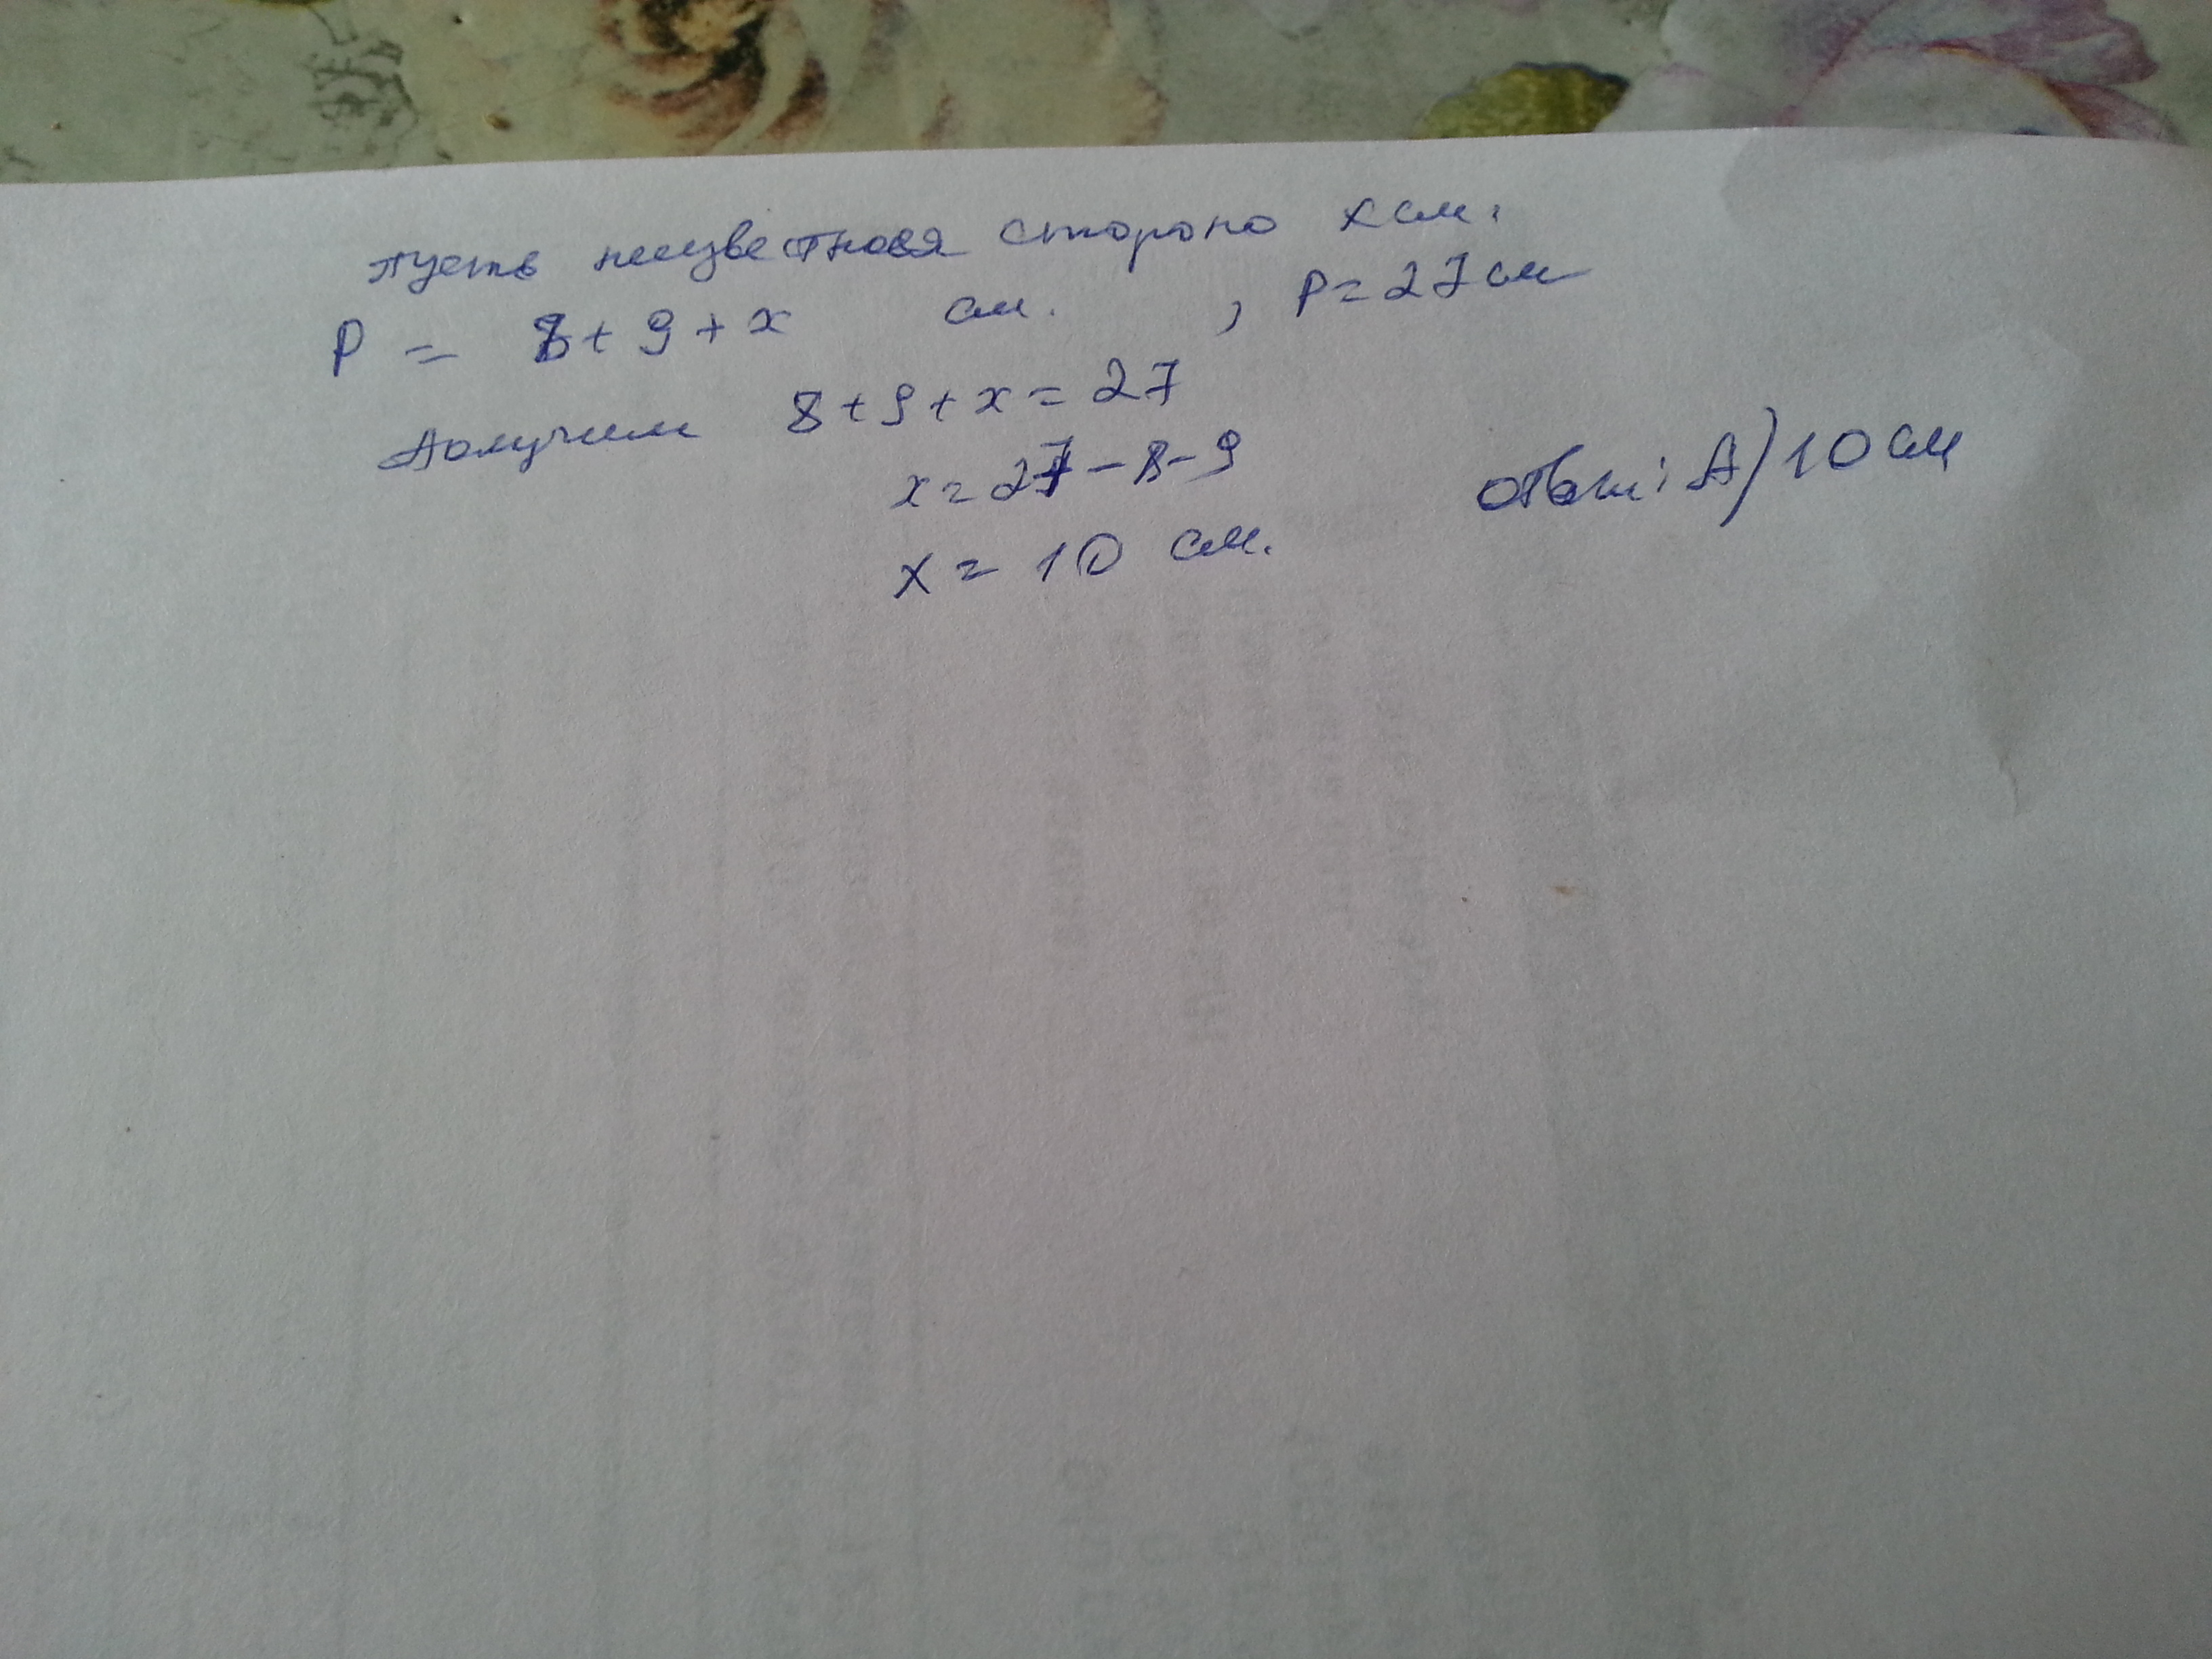 Пусть неизвестная сторона x см.
P = 8 + 9 + x см. , P = 27 см
Получим 8 + 9 + x = 27
x = 27 - 8 - 9
x = 10 см.
Ответ: А) 10 см